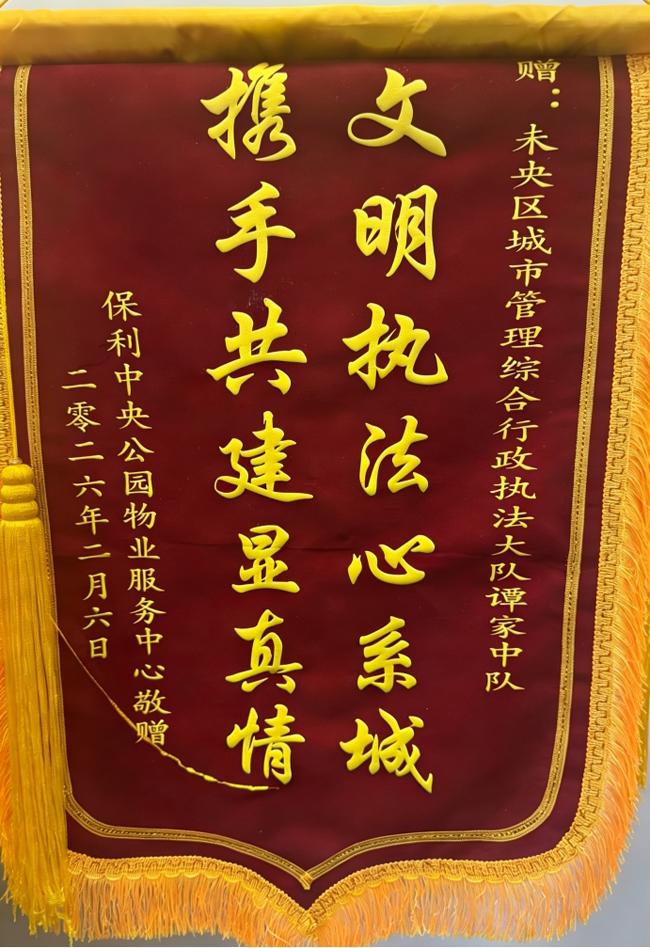 赠：未央区城市管理综合行政执法大队谭家中队
文明执法心系城
携手共建显真情
保利中央公园物业服务中心敬赠
二零二六年二月六日